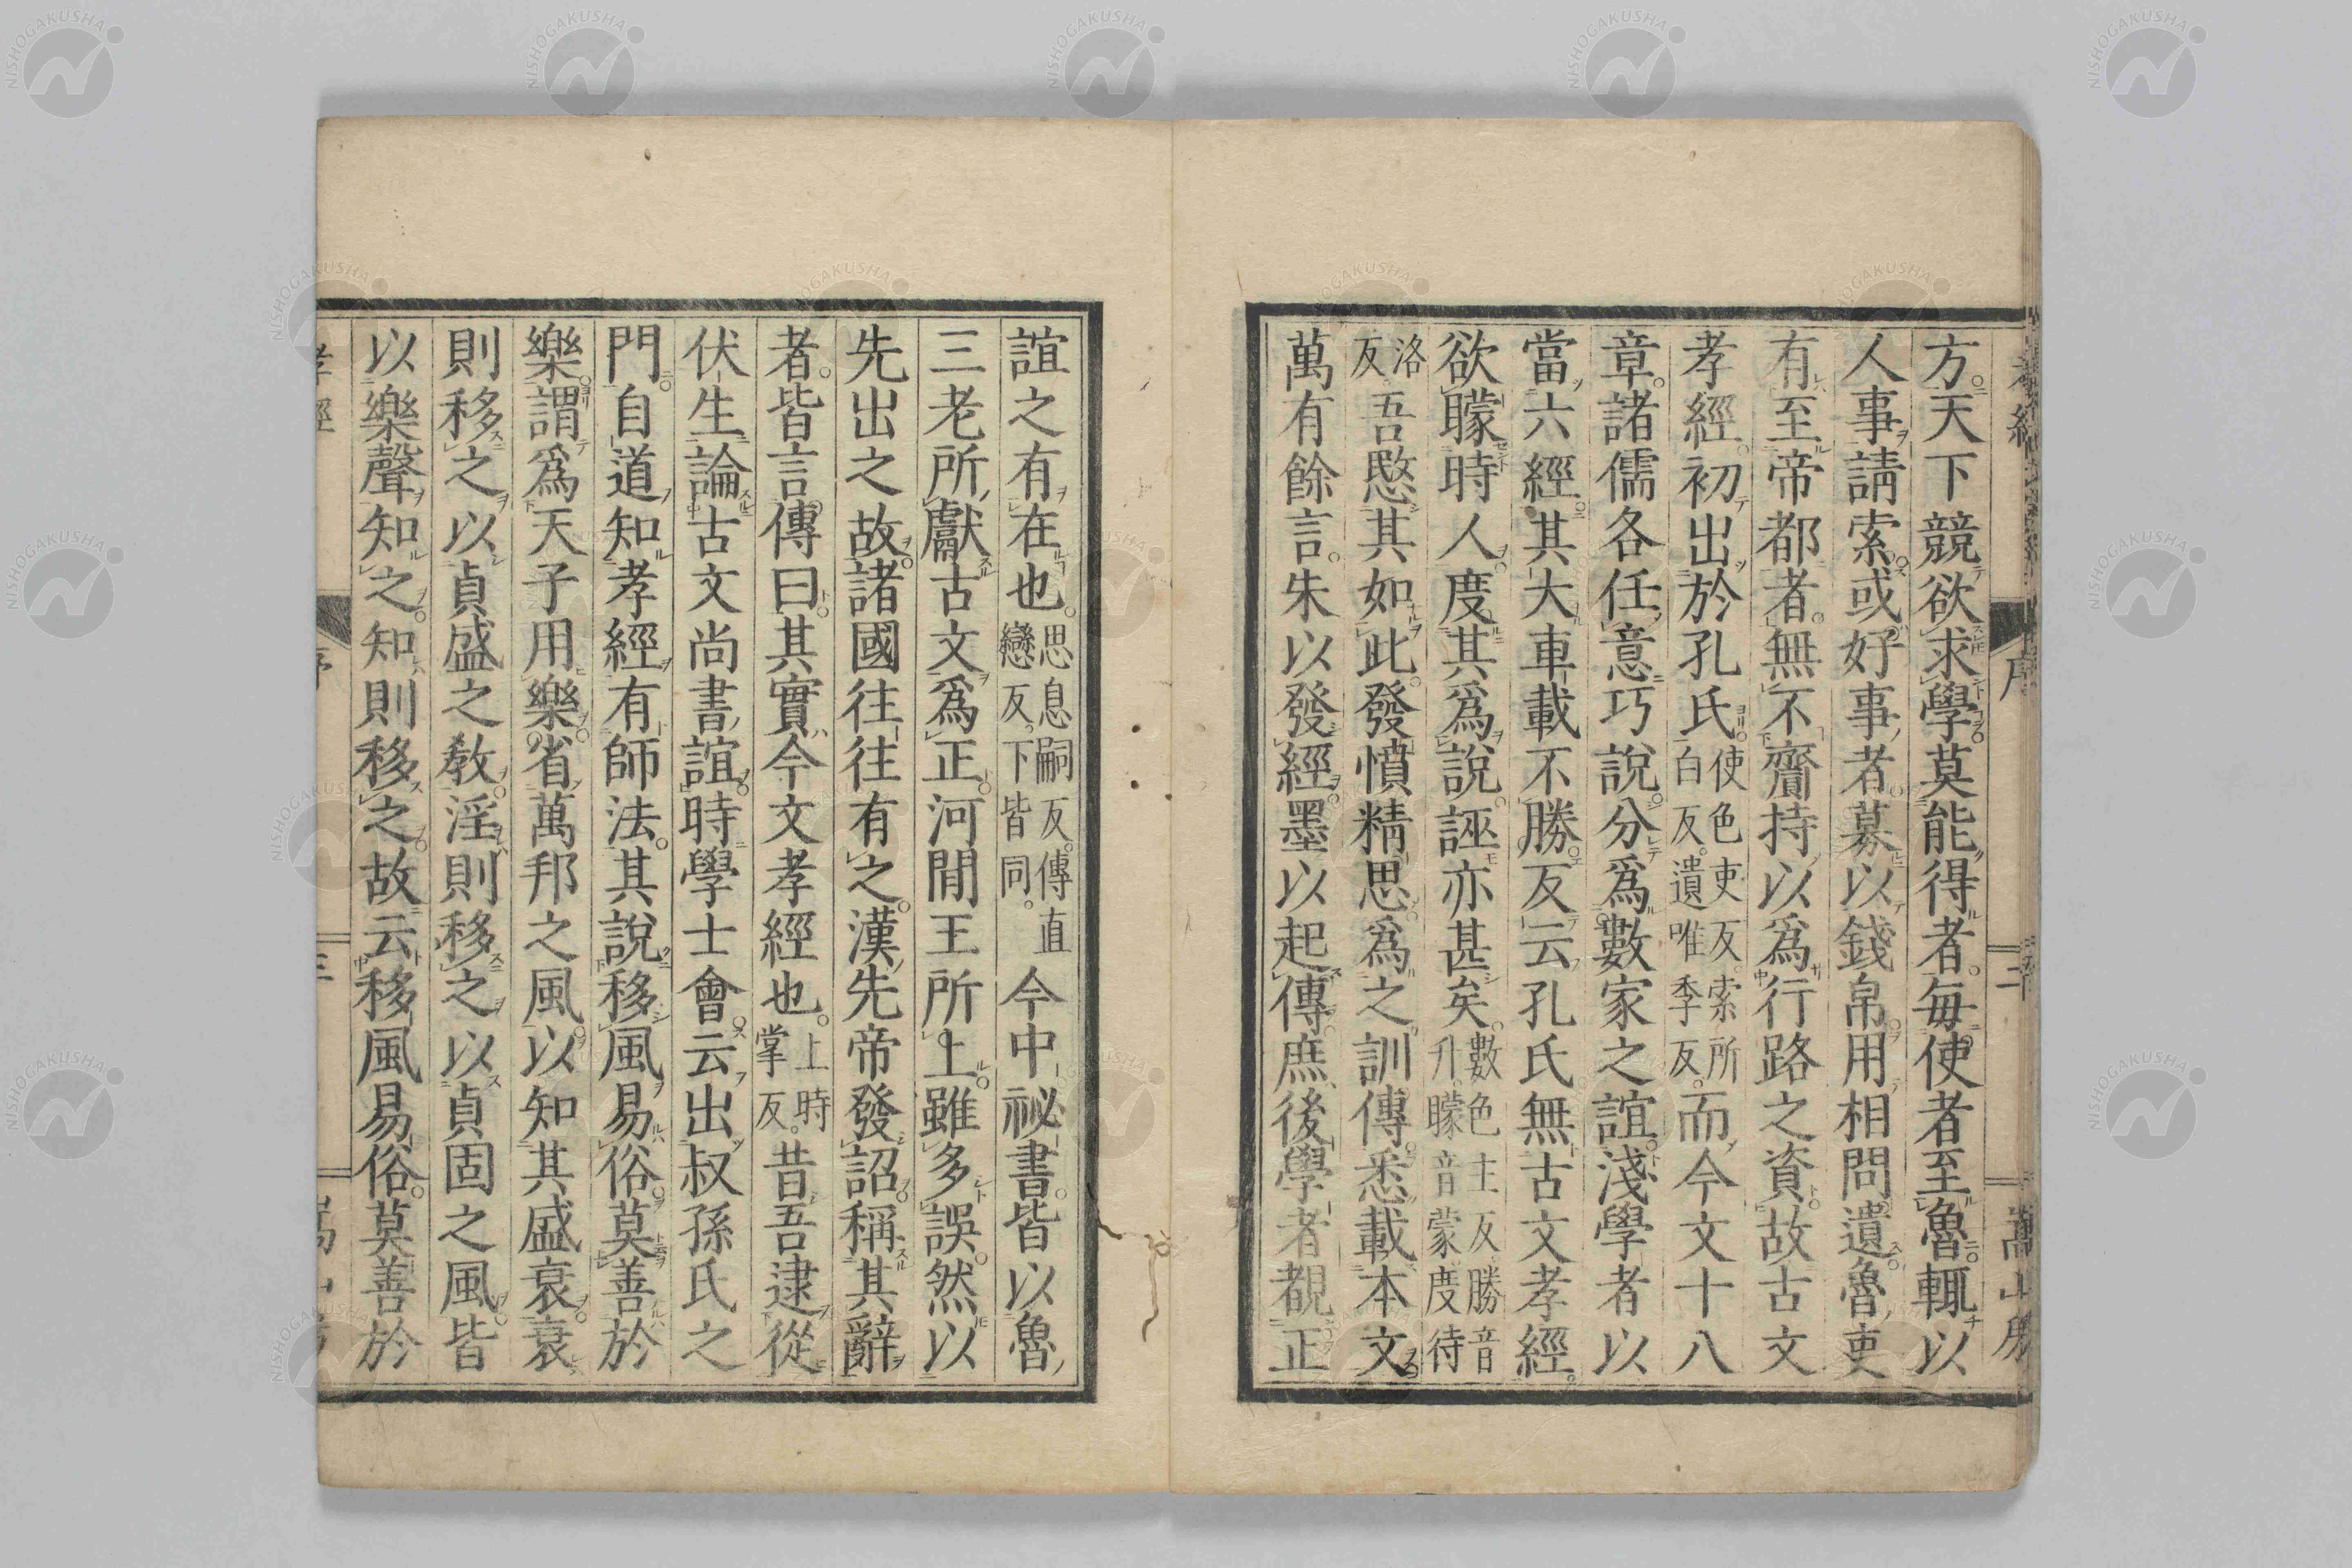 方天下競欲求學莫能得者每使者至魯輒以
人事請索或好事者募以錢帛用相問遺魯吏
有至帝都者無不齎持以爲行路之資故古文
孝經初出於孔氏使色吏反索所白反遺唯季反而今文十八
章諸儒各任意巧說分爲數家之誼淺學者以
當六經其大車載不勝反云孔氏無古文孝經
欲矇時人度其爲說誣亦甚矣數色主反勝音升矇音蒙度待
洛反吾愍其如此發憤精思爲之訓傳悉載本文
萬有餘言朱以發經墨以起傳庶後學者覩正
誼之有在也思息嗣反傳直戀反下皆同今中祕書皆以魯
三老所獻古文爲正河閒王所上雖多誤然以
先出之故諸國往往有之漢先帝發詔稱其辭
者皆言傳曰其實今文孝經也上時掌反昔吾逮從
伏生論古文尚書誼時學士會云出叔孫氏之
門自道知孝經有師法其說移風易俗莫善於
樂謂爲天子用樂省萬邦之風以知其盛衰衰
則移之以貞盛之教淫則移之以貞固之風皆
以樂聲知之知則移之故云移風易俗莫善於
孝經 序 三
NISHOGAKUSHA